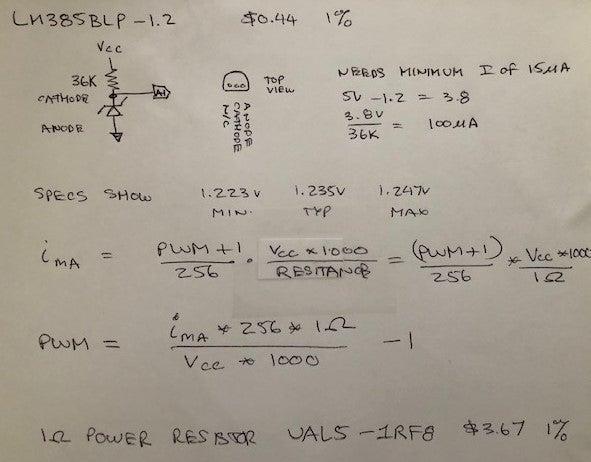 LM385BLP-1.2 $0.44 1%
Vcc
36K
CATHODE
A1
ANODE
TOP VIEW
ANODE
CATHODE
N/C
NEEDS MINIMUM I of 15μA
5V - 1.2 = 3.8
3.8V / 36K = 100μA
SPECS SHOW 1.223V 1.235V 1.247V
MIN. TYP MAX
i mA = PWM+1 / 256 · Vcc * 1000 / RESITANCE = (PWM+1) / 256 * Vcc *1000 / 1Ω
PWM = i mA * 256 * 1Ω / Vcc * 1000 - 1
1Ω POWER RESISTOR UAL5-1RF8 $3.67 1%